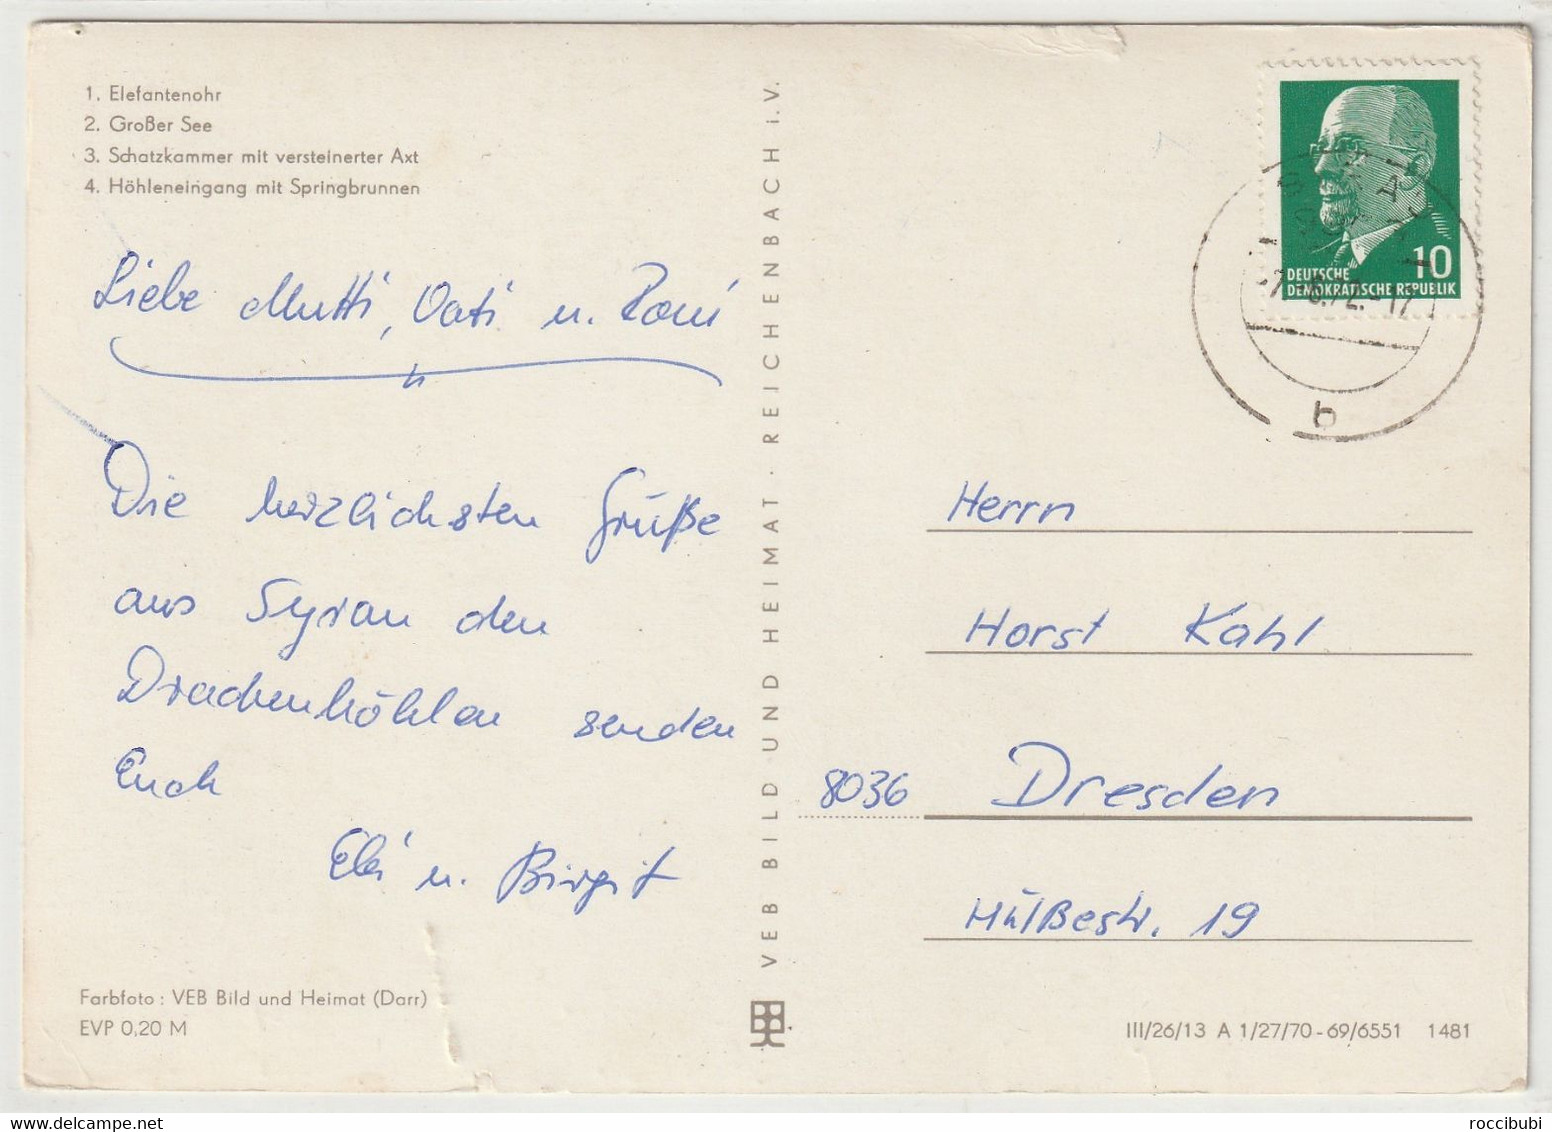 1. Elefantenohr
2. Großer See
3. Schatzkammer mit versteinerter Axt
4. Höhleneingang mit Springbrunnen
Liebe Mutti, Vati u. Roni
Die herzlichsten Grüße
aus Syrau den
Drachenhöhlen senden
Euch
Elli u. Birgit
Farbfoto: VEB Bild und Heimat (Darr)
EVP 0,20 M
VEB BILD UND HEIMAT · REICHENBACH i.V.
10
DEUTSCHE
DEMOKRATISCHE REPUBLIK
b
Herrn
Horst Kahl
8036 Dresden
Hülßestr. 19
III/26/13 A 1/27/70-69/6551 1481
roccibubi